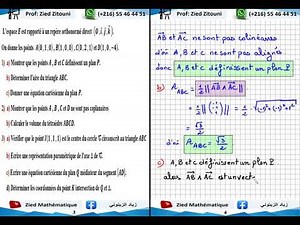 Prof: Zied Zitouni (+216) 55 46 44 51
L'espace E est rapporté à un repère orthonormé direct (O, i, j, k).
On donne les points A(0,1,0), B(1,0,0), C(0,2,1) et D(0,1,-4).
1) a) Montrer que les points A, B et C définissent un plan P.
b) Déterminer l'aire du triangle ABC.
c) Donner une équation cartésienne du plan P.
2) a) Montrer que les points A, B, C et D ne sont pas coplanaires
b) Calculer le volume du tétraèdre ABCD.
3) a) Vérifier que le point I(1,1,1) est le centre du cercle circonscrit au triangle ABC.
b) Ecrire une représentation paramétrique de l'axe Δ de
c) Ecrire une équation cartésienne du plan Q médiateur du segment [AD].
d) Déterminer les coordonnées du point d'intersection de Q et Δ.
Zied Mathématique زياد الزيتوني
3
Prof: Zied Zitouni (+216) 55 46 44 51
AB et AC ne sont pas colinéaires
d'où A, B et C ne sont pas alignés
donc A, B et C définissent un plan P.
b) A ABC = 1/2 ||AB ∧ AC||
d'où A ABC = √3/2
c) A, B et C définissent un plan P
alors AB ∧ AC est un vect-
Zied Mathématique زياد الزيتوني
4